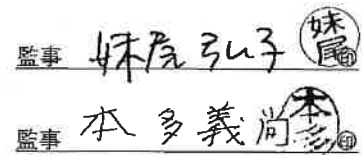 監事 妹尾弘子 妹尾 印
監事 本多義尚 本多 印